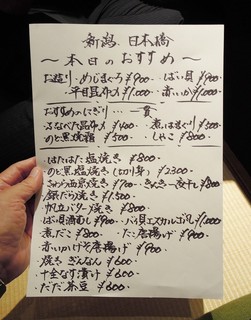 新潟 日本橋
～本日のおすすめ～
お造り・めじまぐろ ¥900・ばい貝 ¥900
・平目昆布〆 ¥1,000・赤いか ¥1,000
おすすめのにぎり…一貫
・るなべた昆布〆 ¥400・煮はまぐり ¥500
・のど黒焼霜 ¥500・しゃこ ¥800
・はたはた塩焼き ¥800
・のど黒塩焼き(切り身) ¥2300
・さわら西京焼き ¥700・きんき一夜干し ¥800
・銀だら焼き ¥1,500
・帆立バター焼き ¥800
・ばい貝酒蒸し ¥900・バイ貝エスカルゴ風 ¥1,000
・煮だこ ¥800・たこ唐揚げ ¥900
・赤いかげそ唐揚げ ¥900
・焼きぎんなん ¥600
・十全なす漬け ¥600
・だだ茶豆 ¥600